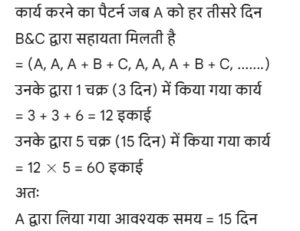 कार्य करने का पैटर्न जब A को हर तीसरे दिन
B&C द्वारा सहायता मिलती है
= (A, A, A + B + C, A, A, A + B + C, .......)
उनके द्वारा 1 चक्र (3 दिन) में किया गया कार्य
= 3 + 3 + 6 = 12 इकाई
उनके द्वारा 5 चक्र (15 दिन) में किया गया कार्य
= 12 × 5 = 60 इकाई
अतः
A द्वारा लिया गया आवश्यक समय = 15 दिन